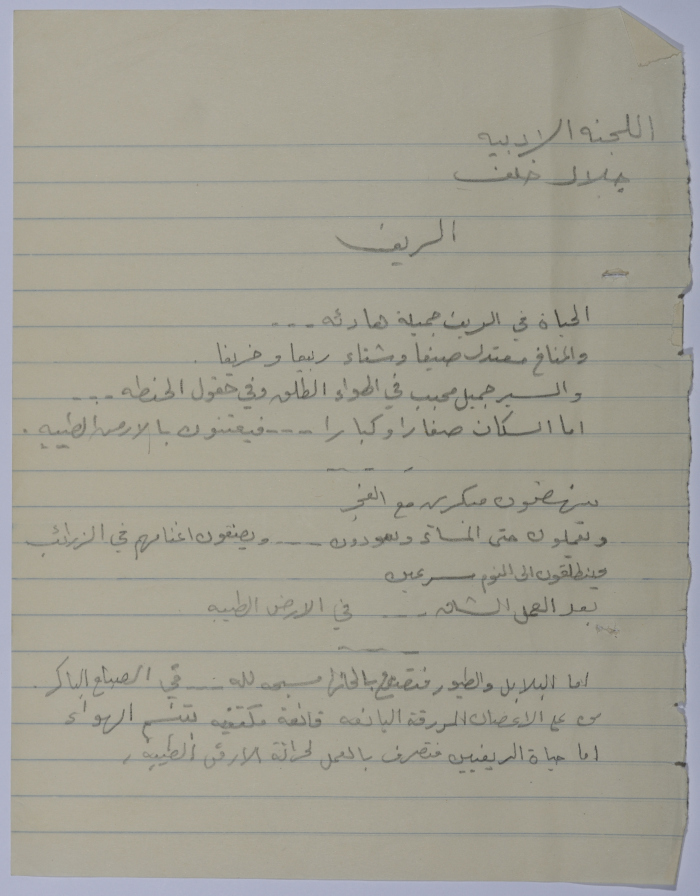 اللجنه الادبيه
جلال خلف
الريف
الحياة في الريف جميلة هادئه ---
والمناخ معتدل صيفا وشتاء ربيعا وخريفا .
والسير جميل محبب في الهواء الطلق وفي حقول الحنطه ---
اما السكان صغارا وكبارا ---- فيعتنون بالارض الطيبه .
ينهضون مبكرين مع الفجر
ويعملون حتى المساء ويعودون ---- ويضعون اغنامهم في الزرائب
فينطلقون الى النوم مسرعين
بعد العمل الشاق --- في الارض الطيبه
اما البلابل والطيور فتصدح بالحانها مسبحه لله --- في الصباح الباكر .
من على الاغصان المورقة اليانعه قانعة مكتفيه تتنسم الهواء
اما حياة الريفيين فتصرف بالعمل لحراثة الارض الطيبه .